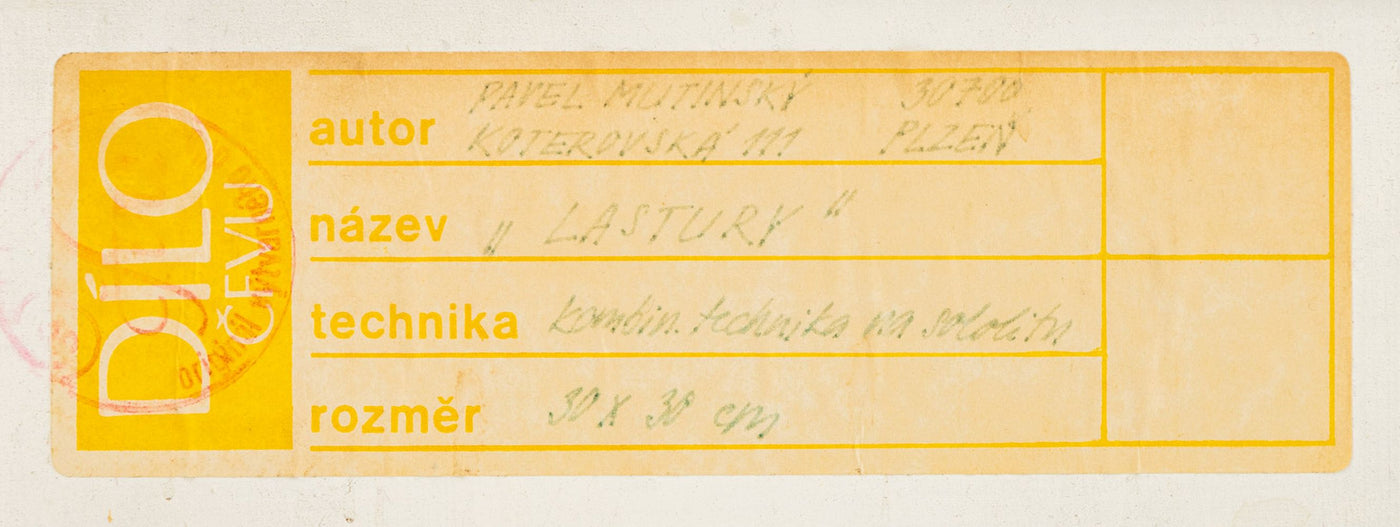 DÍLO
ČFVU
autor
PAVEL MUTINSKÝ 30700
KOTEROVSKÁ 111 PLZEŇ
název
„ LASTURY “
technika kombin. technika na sololitu
rozměr 30 x 30 cm